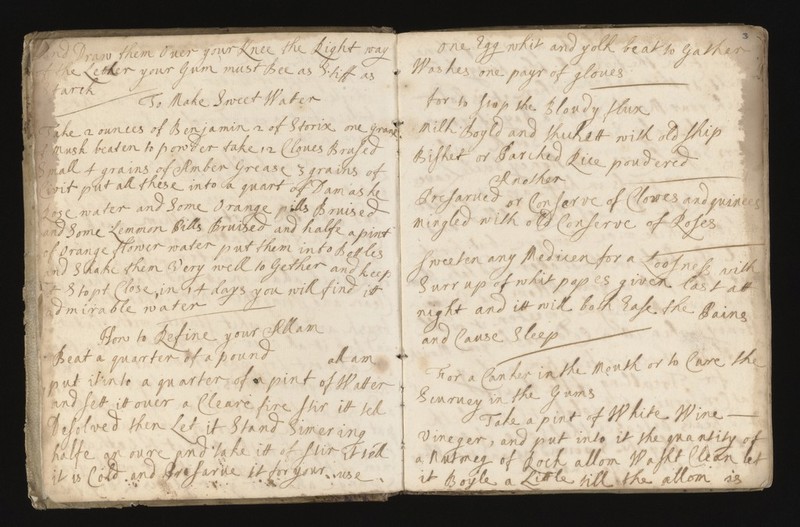 and Draw them over your Knee the Right way
the Lether your Gum must Bee as Stiff as
starch
To Make Sweet Water
Take 2 ounces of Benjamin 2 of Storix one Grane
of mush beaten to powder take 12 Cloves Brused
Small 4 grains of Amber Grease 3 grains of
Civit put all these into a quart of Damaske
Rose water and Some Orange pills Bruised
and Some Lemmon Pills Bruised and halfe a pint
of Orange flower water put them into Bottles
and Shake them Very well to Gether and keep
it Stopt Close in 14 days you will find itt
admirable water
How to Refine your Allam
Beat a quarter of a pound allam
put it into a quarter of a pint of Water
and sett it over a Cleare fire stir itt tel
Desolved then Let it Stand Simering
halfe an oure and take itt of stir it till
it is Cold and Presarve it for your use
3
one Egg whit and yolk beat to Gather
Washes one payr of gloves
for to stop the Bloudy flux
milk Boyld and thickett with old ship
Bisket or Parched Rice poudered
Another
Presarved or Conserve of Clowes and quinces
mingled with old Conserve of Roses
Sweeten any Medicen for a Loosness with
Surrup of whit popes given last att
night and itt will both Ease the Pains
and Cause Sleep
For a Canker in the Mouth or to Cure the
Scurvey in the Gums
Take a pint of White Wine
Vineger, and put into it the quantity of
a Nutmeg of Roch allom Washt Clean let
it Boyle a Little till the allom is